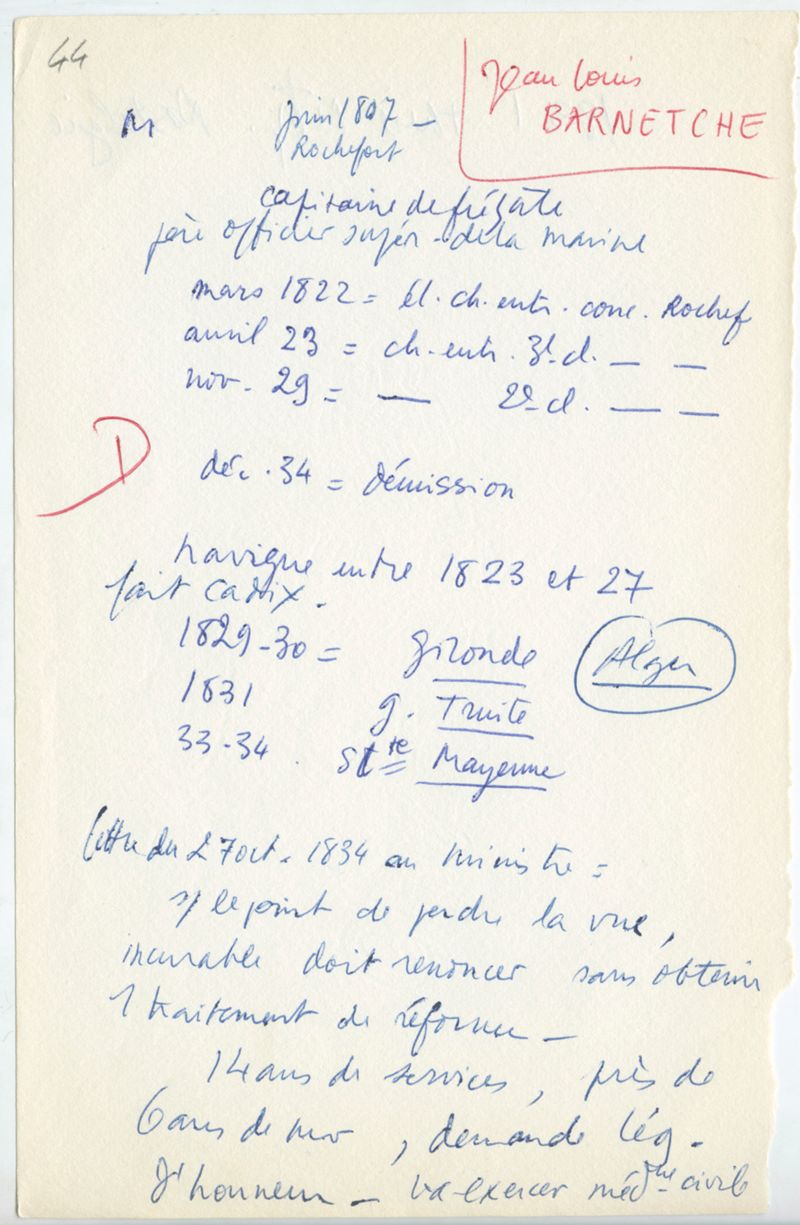 44
Jean Louis
BARNETCHE
N
Juin 1807 -
Rochefort
capitaine de frégate
père officier supér. de la marine
mars 1822 = él. ch. entr. conc. Rochef
avril 23 = ch. entr. 3e cl. — —
nov. 29 = — 2e cl. — —
D
déc. 34 = Démission
navigue entre 1823 et 27
fait Cadix.
1829-30 = Gironde Alger
1831 g. Truite
33-34. St te Mayenne
lettre du 27 oct. 1834 au ministre =
s/ le point de perdre la vue,
incurable doit renoncer sans obtenir
1 traitement de réforme —
14 ans de services, près de
6 ans de mer, demande lég.
d'honneur — va exercer méd ne civile